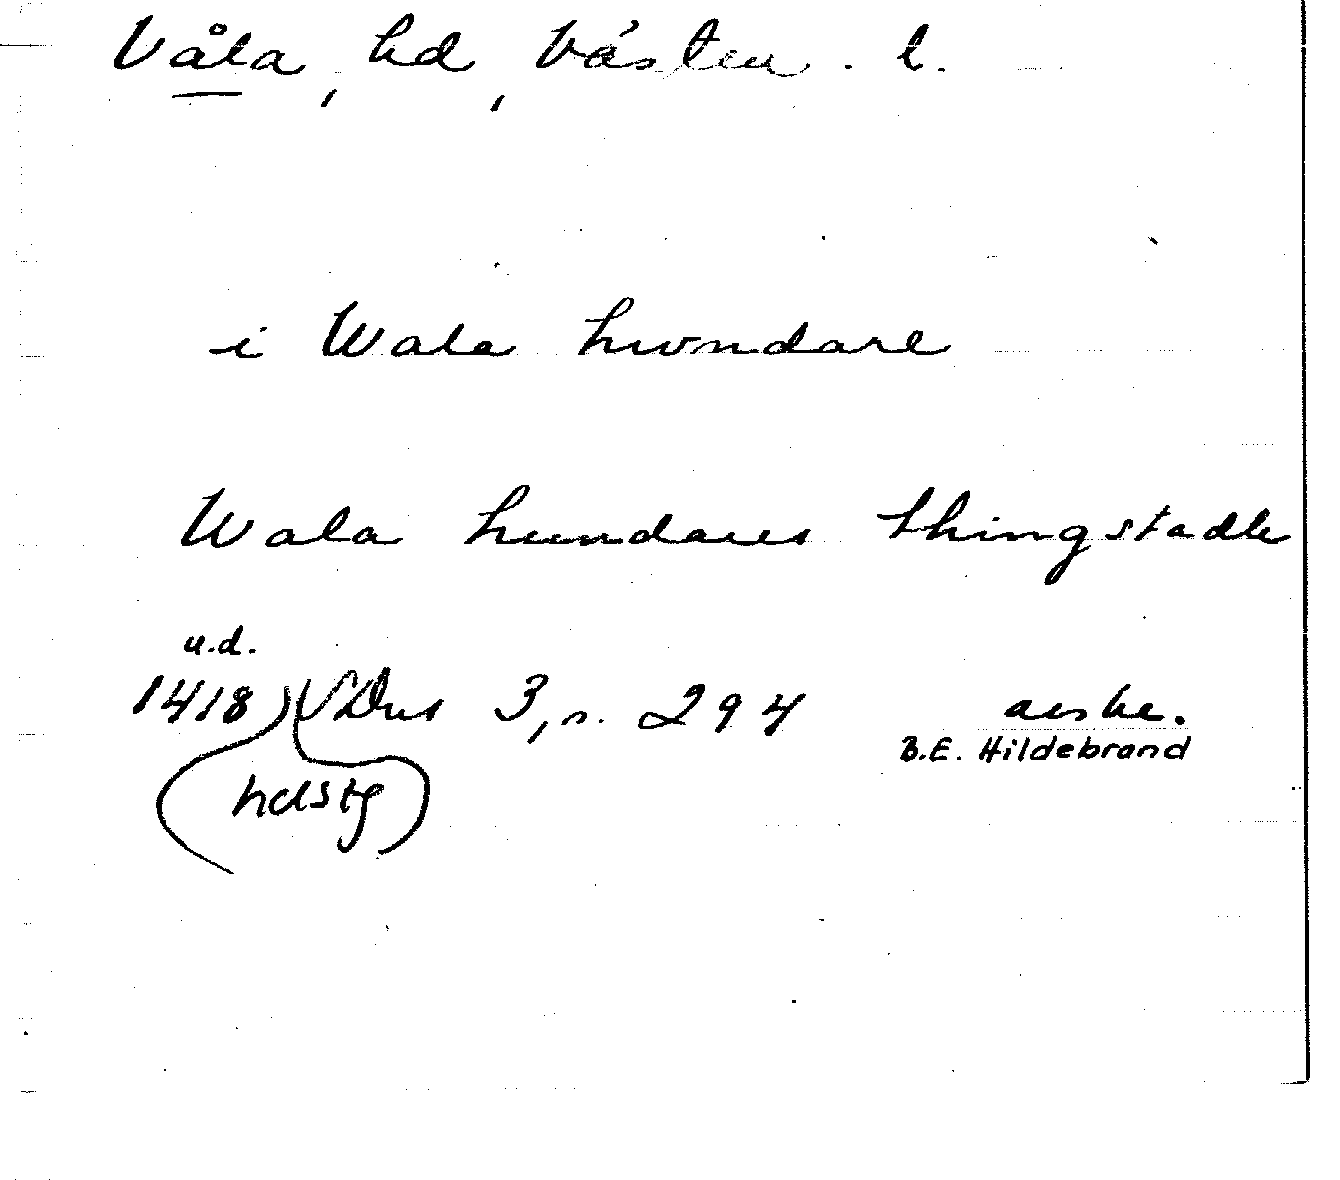 Våla, hd, Västm. l.
i Wala hwndare
Wala hundares thingstadh
u.d.
1418 SDns 3, s. 294 avskr.
B.E. Hildebrand
(hdstg)